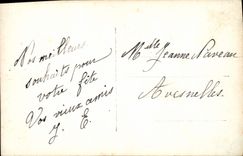 Nos meilleurs
souhaits pour
votre fête
Vos vieux amis
J. E.
Mlle Jeanne
Avesnelles.